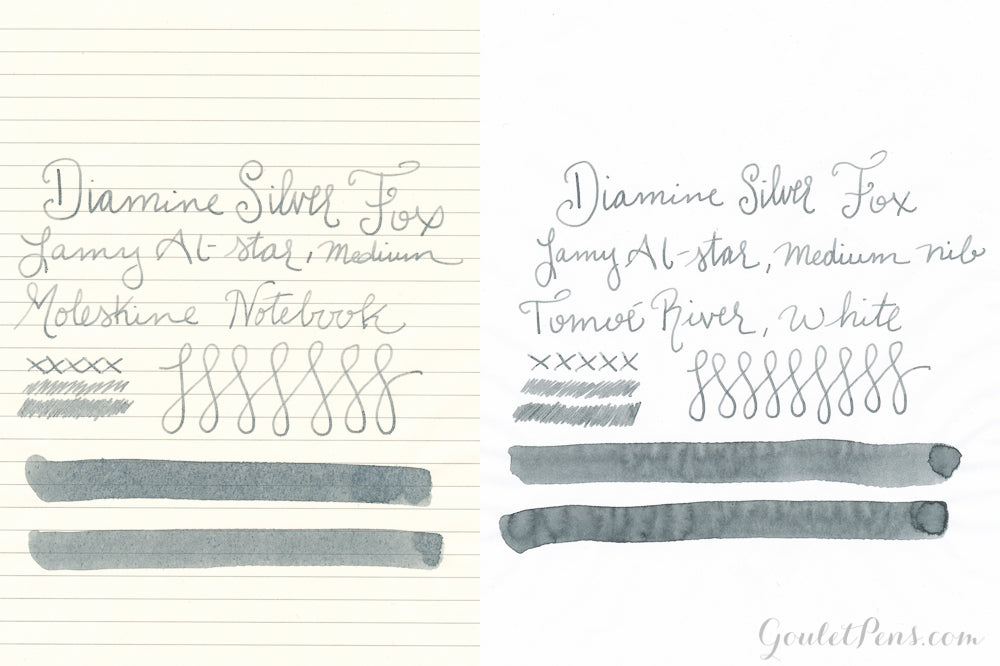 Diamine Silver Fox
Lamy Al-star, medium
Moleskine Notebook
xxxxx
Diamine Silver Fox
Lamy Al-star, medium nib
Tomoé River, white
xxxxx
GouletPens.com